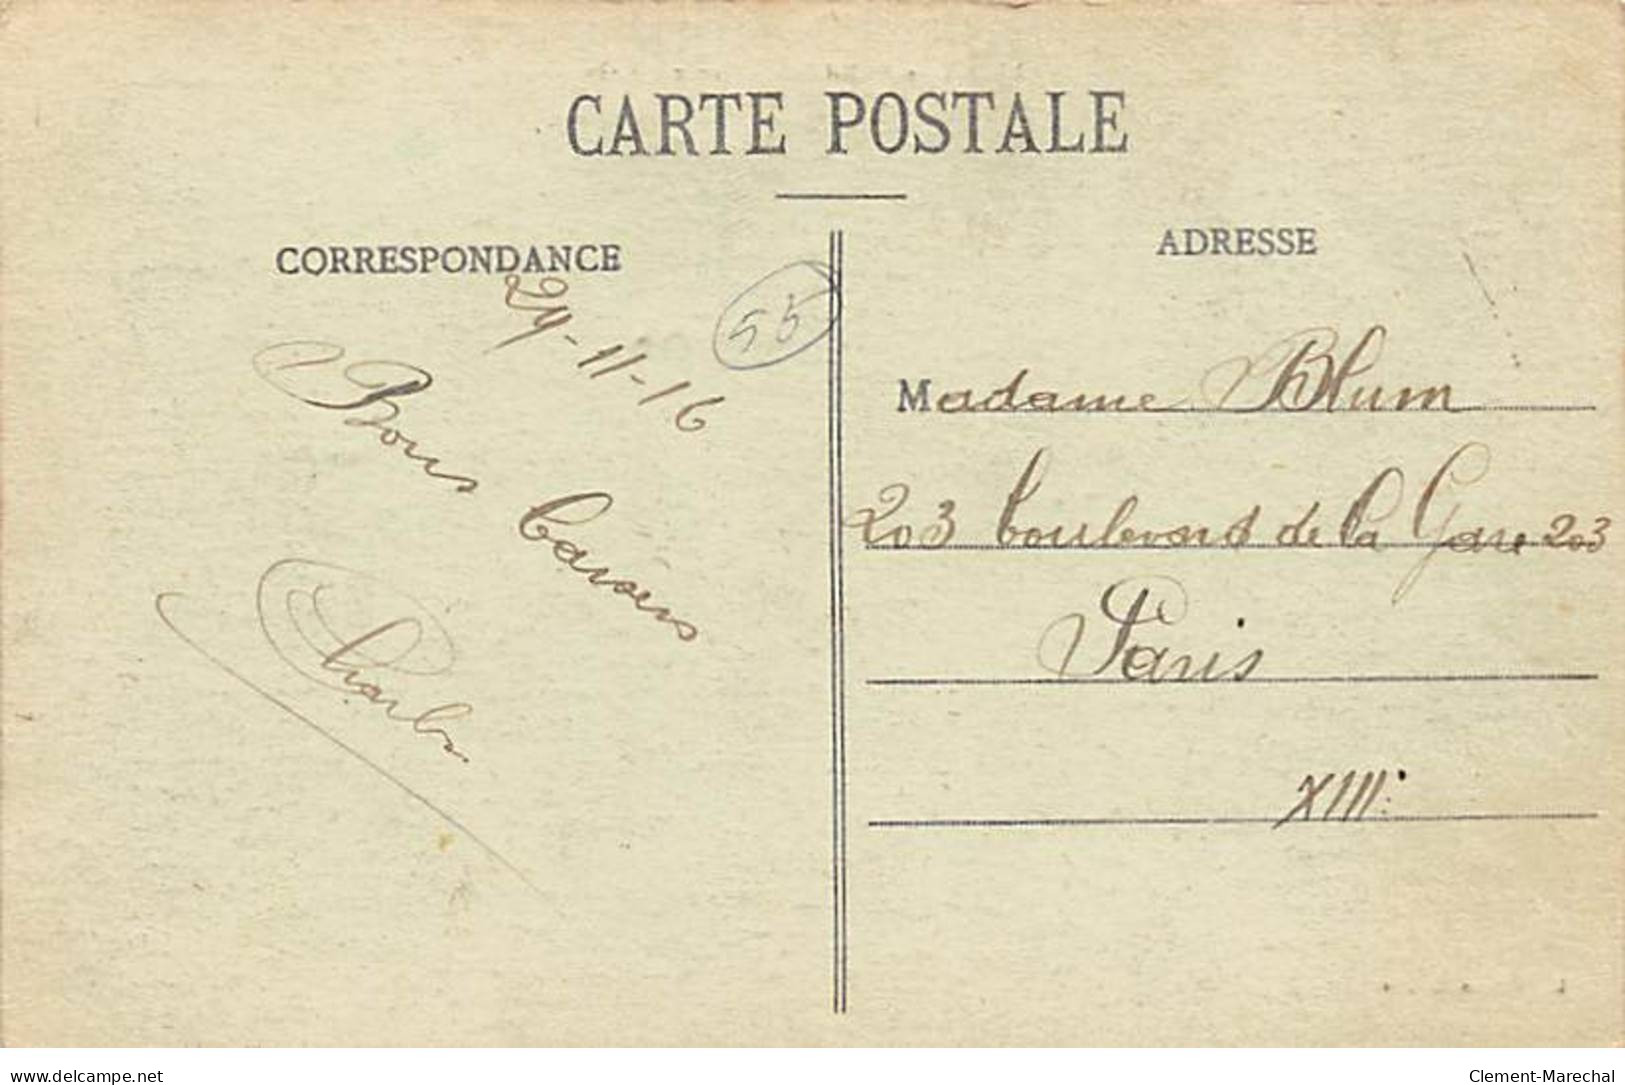 CARTE POSTALE
CORRESPONDANCE
29-11-16
55
Bons baisers
Charles
ADRESSE
Madame Blum
203 boulevard de la Gare 203
Paris
XIIIe
delcampe.net
Clement-Marechal